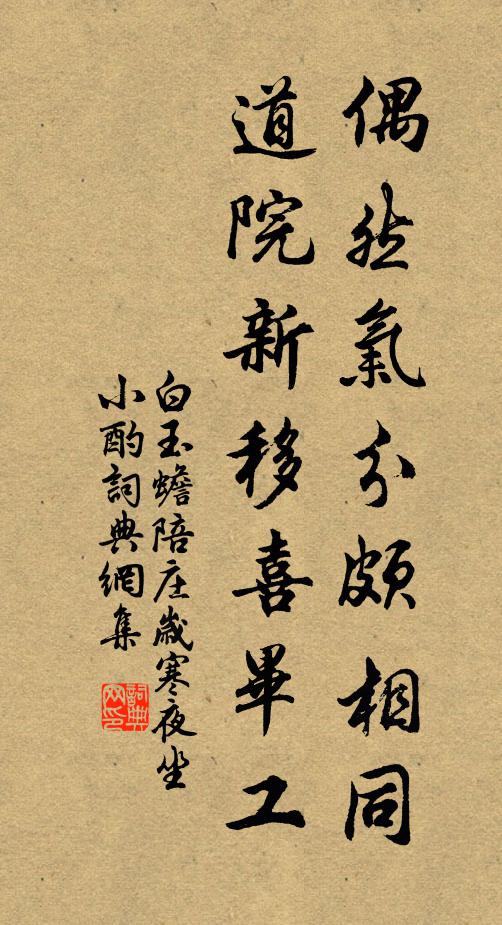 偶然氣分頗相同
道院新移喜畢工
白玉蟾陪庄歲寒夜坐
小酌詞典網集
詞典网印